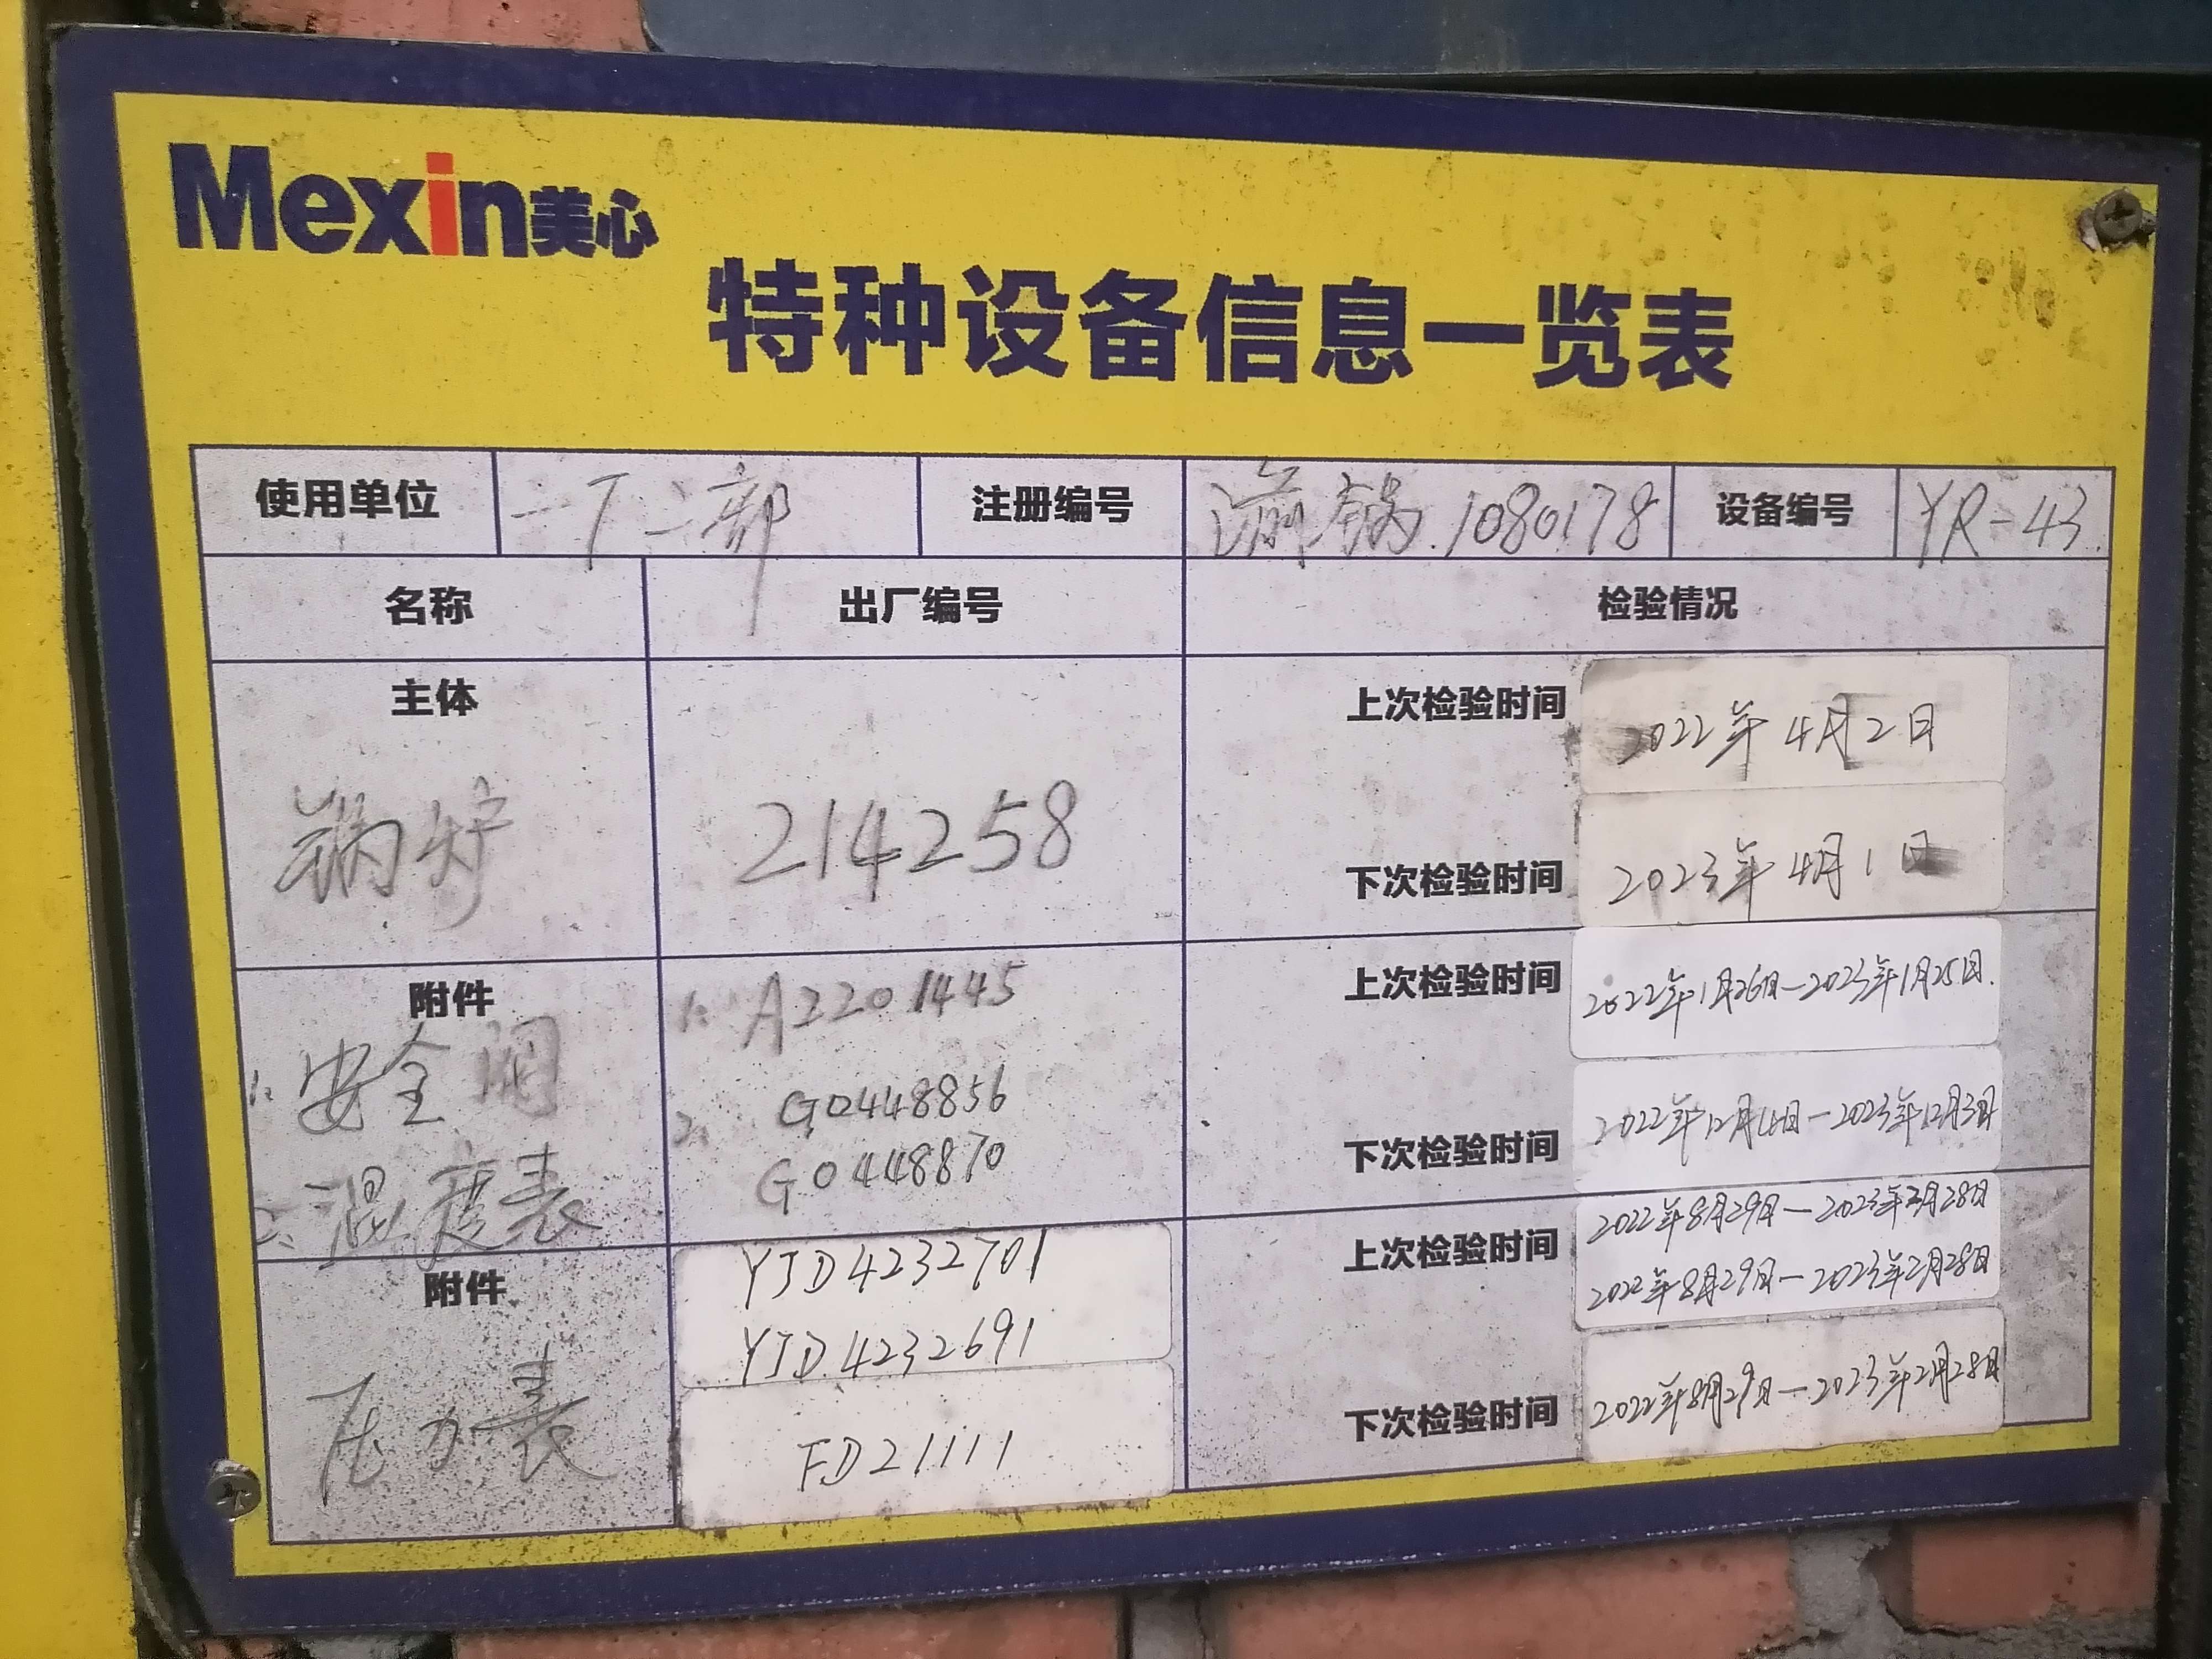 Mexin美心
特种设备信息一览表
使用单位 一厂二部 注册编号 渝锅.1080178 设备编号 YR-43
名称 出厂编号 检验情况
主体 上次检验时间 2022年4月2日
锅炉 214258
下次检验时间 2023年4月1日
附件 1: A2201445 上次检验时间 2022年1月26日—2023年1月25日.
1: 安全阀
2: G0448856 下次检验时间 2022年12月4日—2023年12月3日
2、温度表 G0448870
附件 YJD4232701 上次检验时间 2022年8月29日—2023年2月28日
YJD4232691 2022年8月29日—2023年2月28日
压力表 FD21111 下次检验时间 2022年8月29日—2023年2月28日